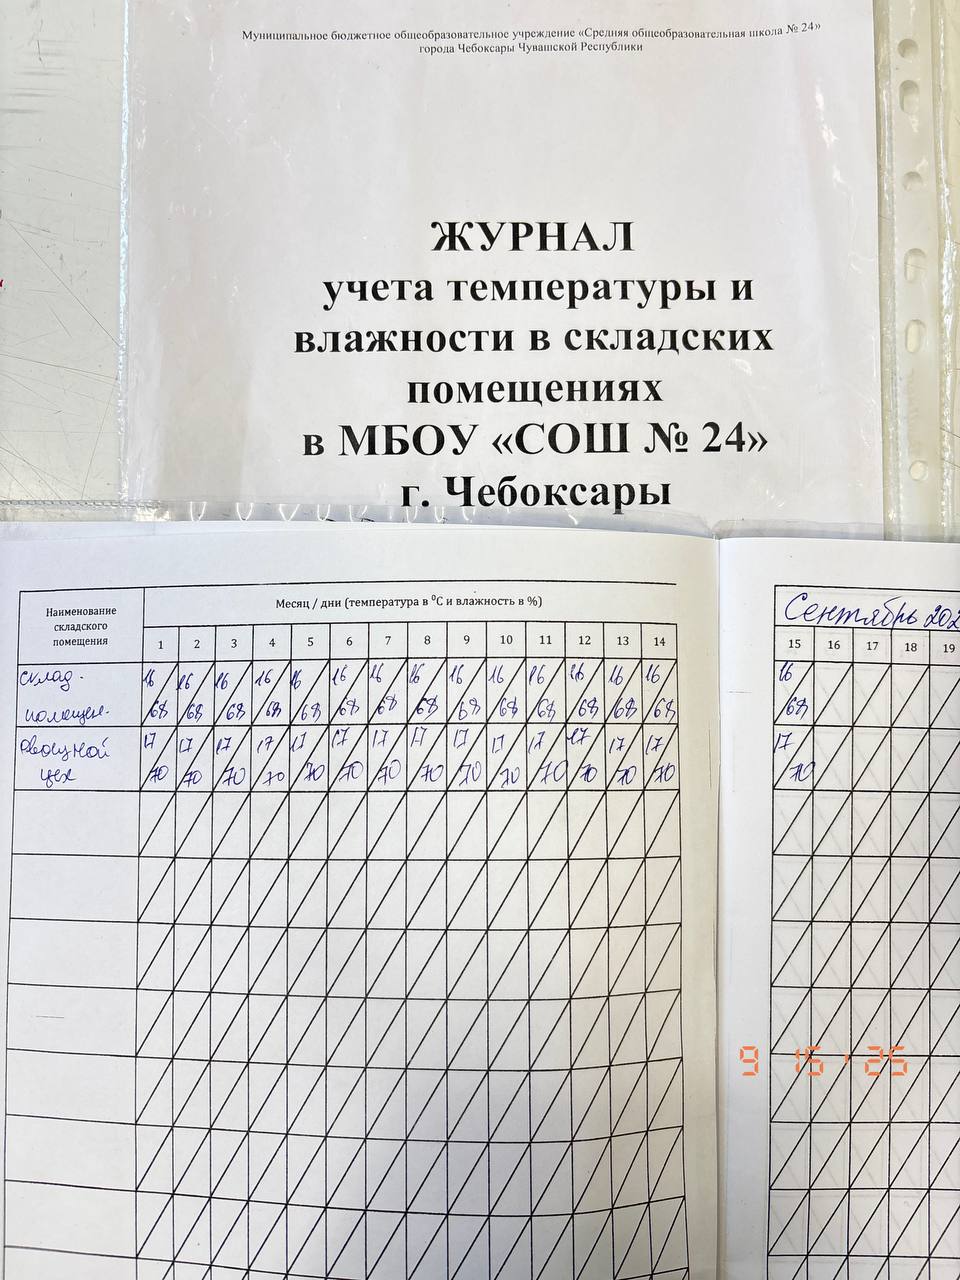 Муниципальное бюджетное общеобразовательное учреждение «Средняя общеобразовательная школа № 24»
города Чебоксары Чувашской Республики
ЖУРНАЛ
учета температуры и
влажности в складских
помещениях
в МБОУ «СОШ № 24»
г. Чебоксары
Наименование складского помещения
Месяц / дни (температура в ⁰С и влажность в %)
1 2 3 4 5 6 7 8 9 10 11 12 13 14
Сентябрь 202
15 16 17 18 19
склад.
16 16 16 16 16 16 16 16 16 16 16 16 16 16 16
помещен.
68 68 68 68 68 68 68 68 68 68 68 68 68 68 68
Овощной
17 17 17 17 17 17 17 17 17 17 17 17 17 17 17
цех
70 70 70 70 70 70 70 70 70 70 70 70 70 70 70
9 15 ' 25